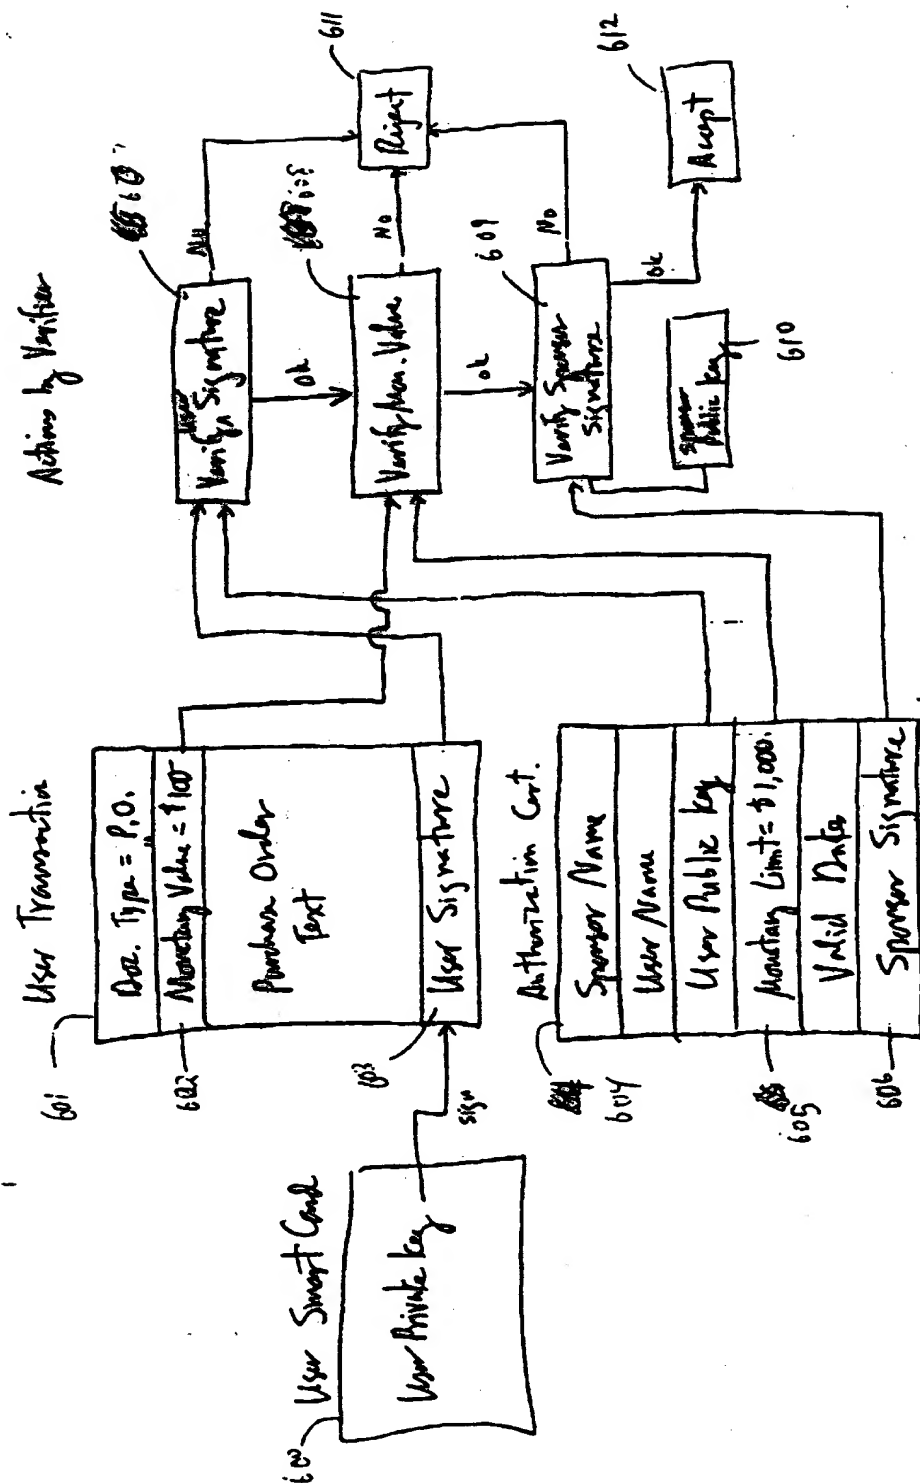 User Smart Card
600
User Private Key
sign
User Transaction
601
Doc. Type = P.O.
602
Monetary Value = $100
Purchase Order
Text
603
User Signature
Authorization Cert.
604
Sponsor Name
User Name
User Public Key
605
Monetary Limit = $1,000.
Valid Dates
606
Sponsor Signature
Actions by Verifier
Verify User Signature
No
OK
Verify Mon. Value
No
OK
609
Verify Sponsor
Signature
No
OK
Sponsor
Public Key
610
Reject
611
Accept
612